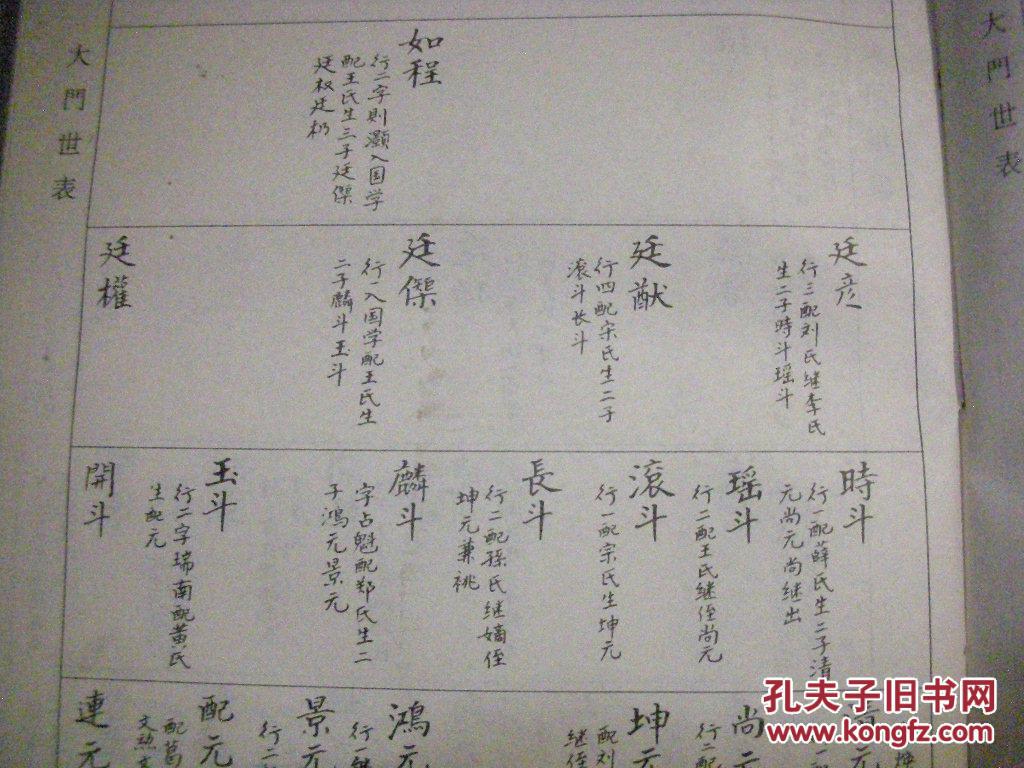 大門世表
如程
行二字則灝入国学
配王氏生三子廷傑
廷权廷杨
廷彦
行三配刘氏继李氏
生二子時斗瑶斗
廷猷
行四配宋氏生二子
滚斗长斗
廷傑
行一入国学配王氏生
二子麟斗玉斗
廷權
時斗
行一配薛氏生二子清
元尚元尚继出
瑶斗
行二配王氏继侄尚元
滚斗
行一配宗氏生坤元
長斗
行二配孫氏继嫡侄
坤元兼祧
麟斗
字占魁配郑氏生二
子鴻元景元
玉斗
行二字瑞南配黄氏
生配元
開斗
尚元
行二配
坤元
配刘
继侄
鴻元
行一
景元
行二
配元
配葛
連元
大門世表
孔夫子旧书网
KONGFZ.COM